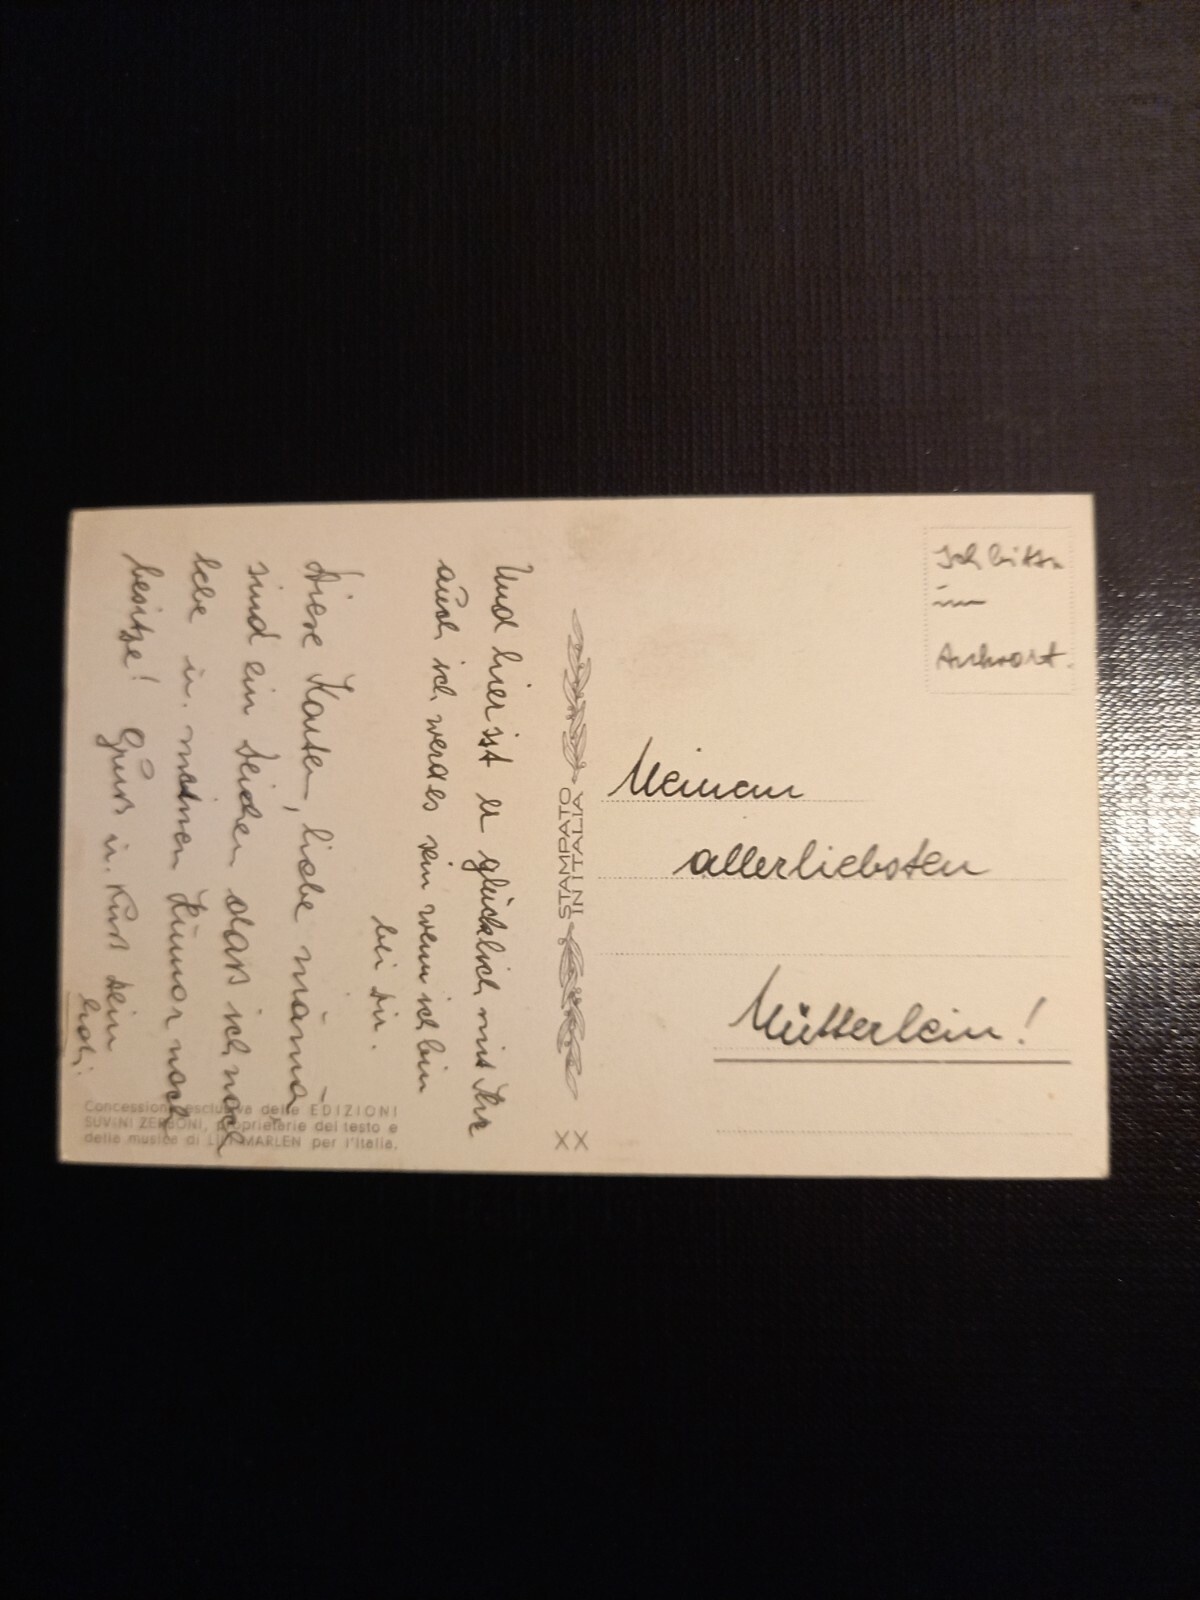 Und hier ist er glücklich mit Ihr
auch ich werde es sein wenn ich bin
bei Dir.
Diese Karten, liebe Mama
sind ein Zeichen dass ich noch
lebe u. meinen Humor noch
besitze! Gruss u. Kuss Dein
STAMPATO
IN ITALIA
XX
Ich bitte
um
Antwort.
Meinem
allerliebsten
Mütterlein!
Concessione esclusiva delle EDIZIONI
SUVINI ZERBONI, proprietarie del testo e
della musica di LILI MARLEN per l'Italia.